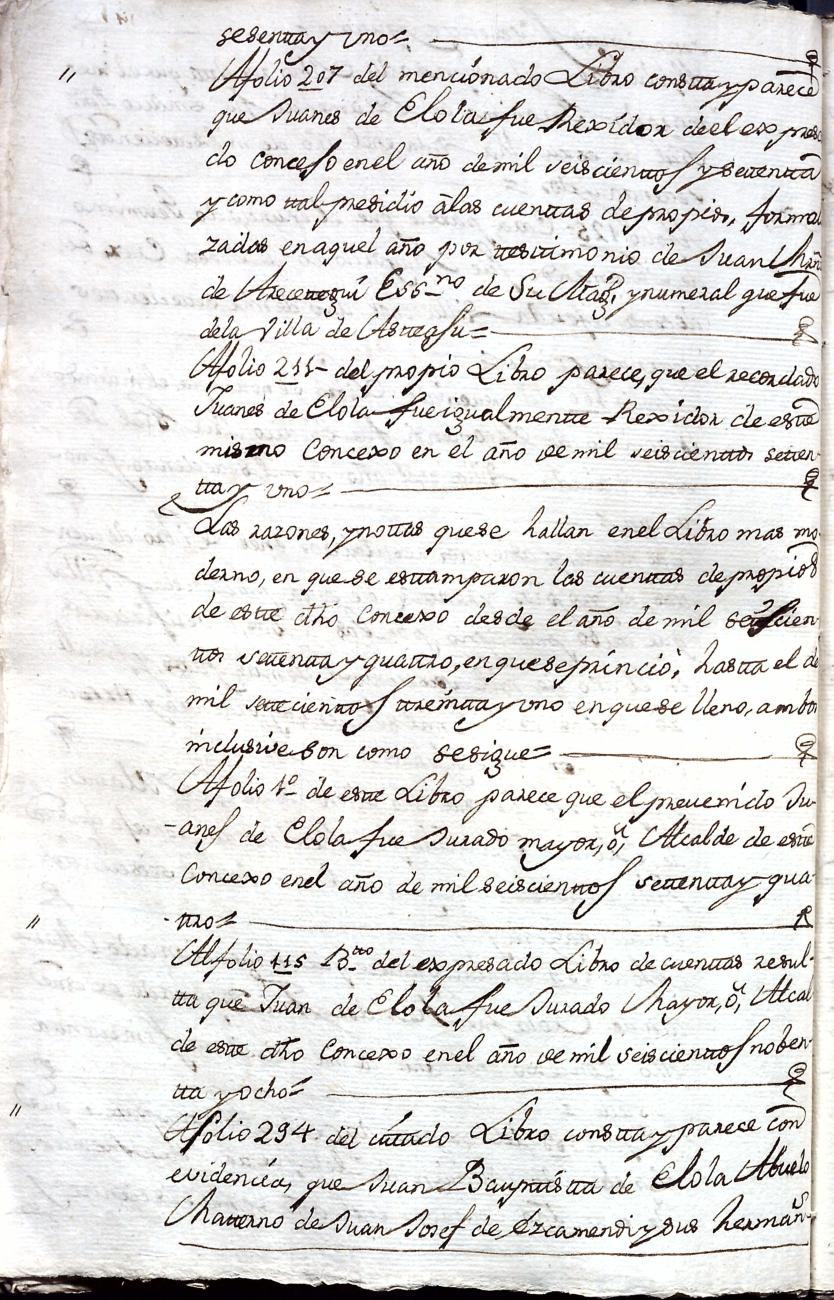 sesenta y uno=
A folio 207 del mencionado Libro consta y parece
que Juanes de Elola fue Rexidor de el expresa
do concejo en el año de mil seiscientos y setenta
y como tal presidio à las cuentas de propios, formal
zadas en aquel año por testimonio de Juan Mrñ
de Arceteguí Ess.no de Su Mag.d, y numeral que fue
de la Villa de Asteasu=
A folio 211 del propio Libro parece, que el recordado
Juanes de Elola fue igualmente Rexidor de este
mismo Concexo en el año de mil seiscientos seten-
ta y uno=
Las razones, y notas que se hallan en el Libro mas mo-
derno, en que se estamparon las cuentas de propios
de este dho Concexo desde el año de mil seiscien-
tos setenta y quatro, en que se princió, hasta el de
mil setecientos treinta y uno en que se lleno, ambos
inclusive son como se sigue=
A folio 1.o de este Libro parece que el prevenido Ju-
anes de Elola fue Jurado mayor, ó, Alcalde de este
Concexo en el año de mil seiscientos setenta y qua-
tro=
Al folio 115 B.to del expresado Libro de cuentas resul-
ta que Juan de Elola fue Jurado Mayor, ó, Alcal-
de este dho Concexo en el año de mil seiscientos noben-
ta y ocho=
A folio 294 del citado Libro consta y parece con
evidencia, que Juan Bauptista de Elola Abuelo
Materno de Juan Josef de Ezcamendi y sus herman.s